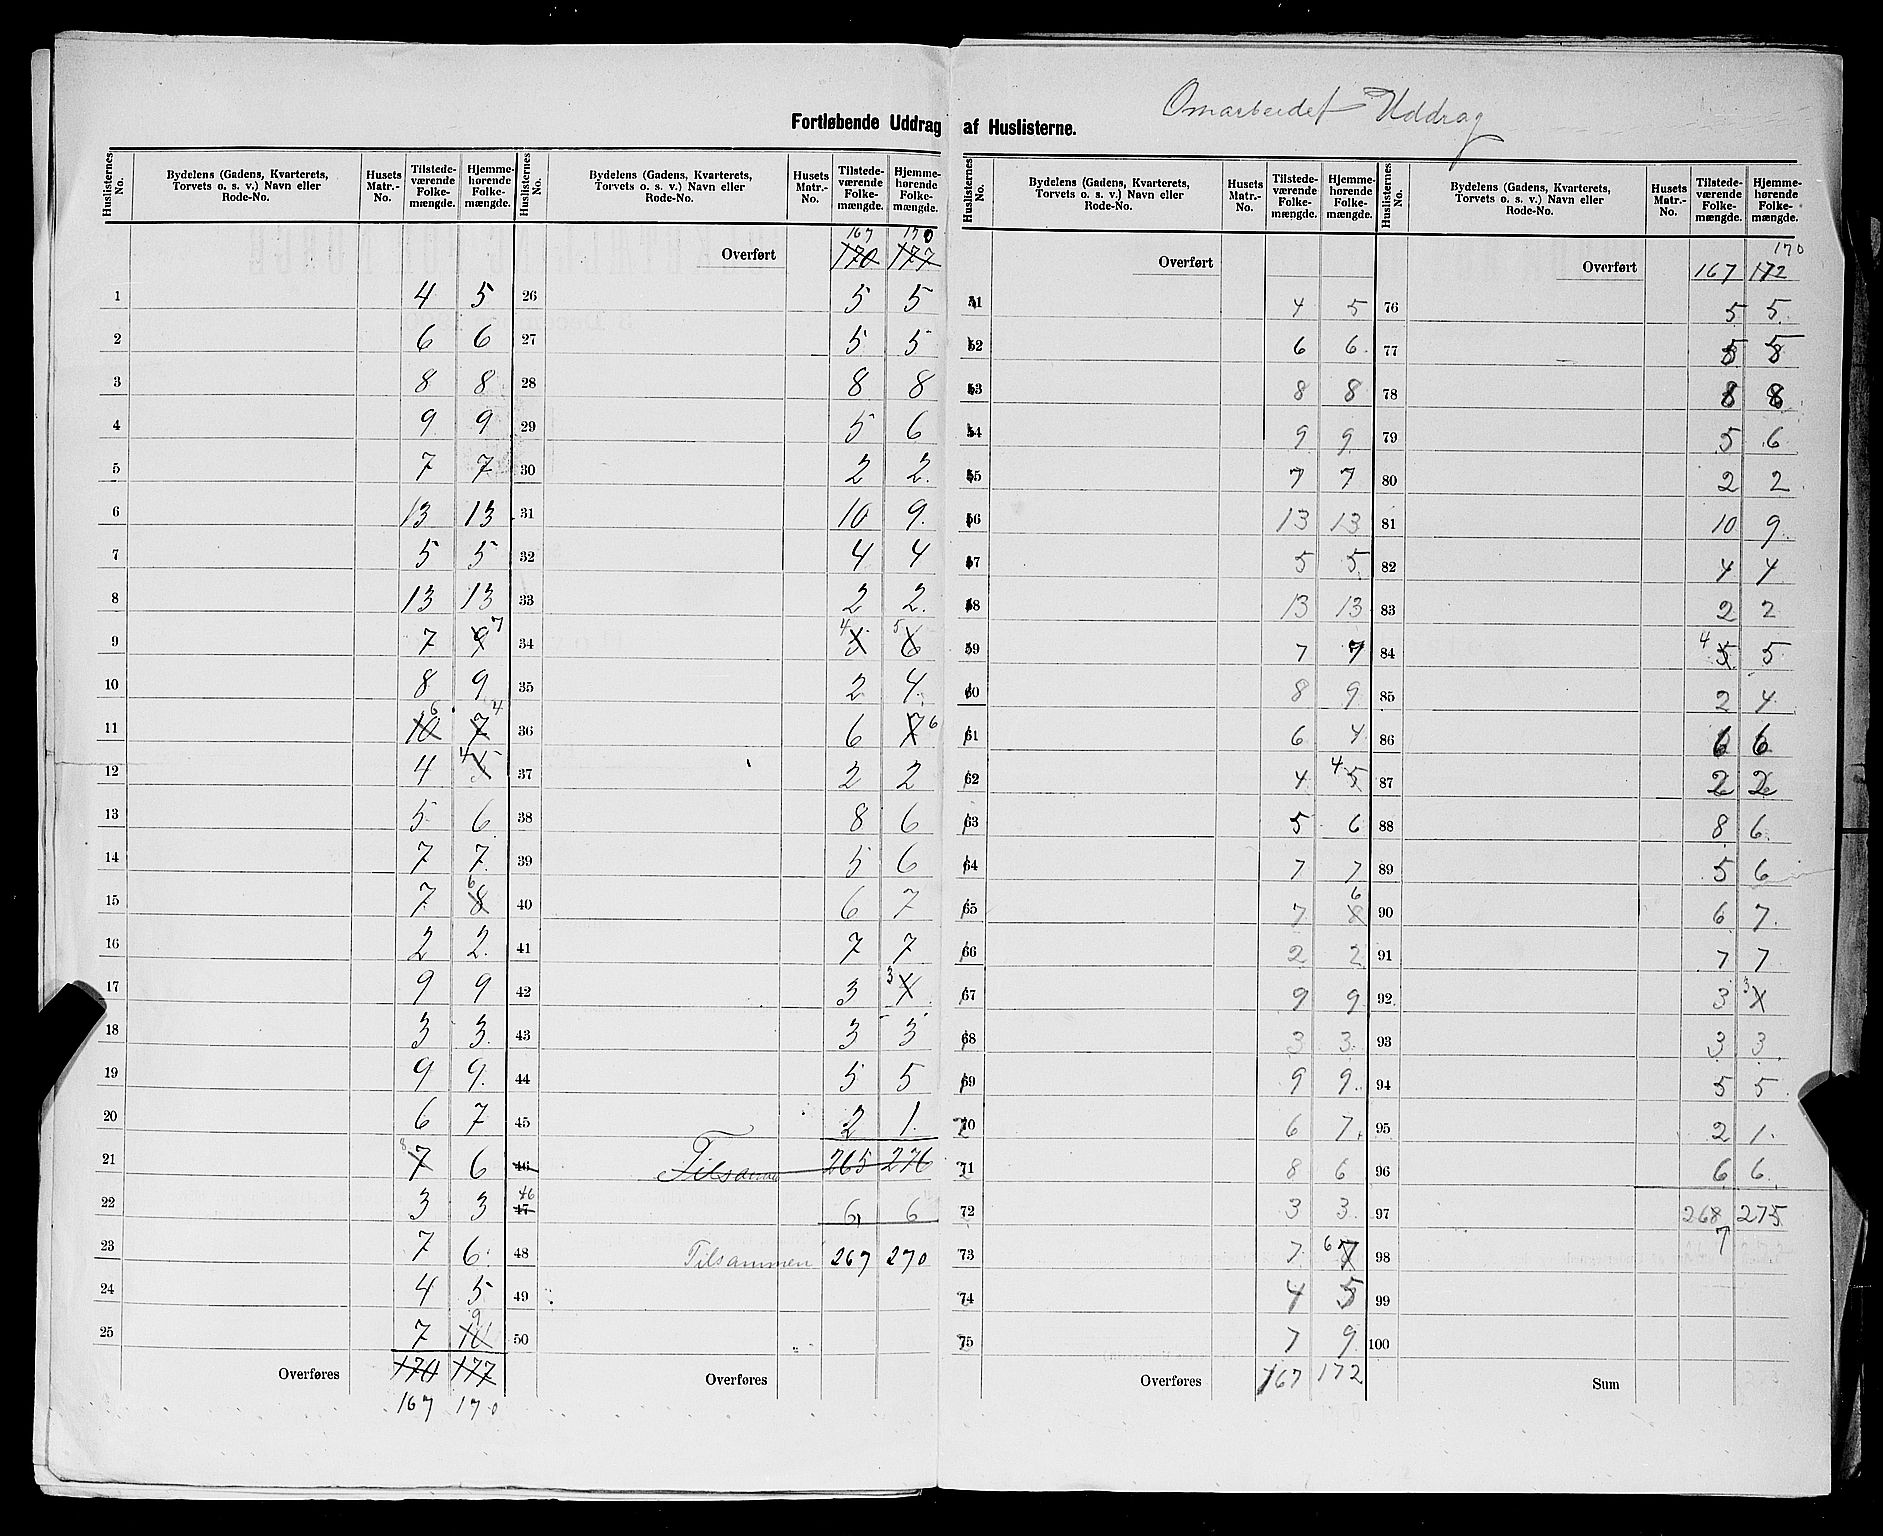 Omarbeidet Uddrag
Fortløbende Uddrag af Huslisterne.
Huslisternes No. | Bydelens (Gadens, Kvarterets, Torvets o. s. v.) Navn eller Rode-No. | Husets Matr.-No. | Tilstedeværende Folkemængde. | Hjemmehørende Folkemængde.
1 4 5
2 6 6
3 8 8
4 9 9
5 7 7
6 13 13
7 5 5
8 13 13
9 7 9 7
10 8 9
11 10 6 7 4
12 4 4 5
13 5 6
14 7 7
15 7 6 8
16 2 2
17 9 9
18 3 3
19 9 9
20 6 7
21 8 7 6
22 3 3
23 7 6
24 4 5
25 7 9 10
Overføres 170 177
167 170
Huslisternes No. | Bydelens (Gadens, Kvarterets, Torvets o. s. v.) Navn eller Rode-No. | Husets Matr.-No. | Tilstedeværende Folkemængde. | Hjemmehørende Folkemængde.
167 170
Overført 170 177
26 5 5
27 5 5
28 8 8
29 5 6
30 2 2
31 10 9
32 4 4
33 2 2
34 4 5 5 6
35 2 4
36 6 7 6
37 2 2
38 8 6
39 5 6
40 6 7
41 7 7
42 3 3 4
43 3 3
44 5 5
45 2 1
46 Tilsammen 265 276
46 47 6 6
48 Tilsammen 267 270
49
50
Overføres
Huslisternes No. | Bydelens (Gadens, Kvarterets, Torvets o. s. v.) Navn eller Rode-No. | Husets Matr.-No. | Tilstedeværende Folkemængde. | Hjemmehørende Folkemængde.
Overført
51 4 5
52 6 6
53 8 8
54 9 9
55 7 7
56 13 13
57 5 5
58 13 13
59 7 7
60 8 9
61 6 4
62 4 4 5
63 5 6
64 7 7
65 7 6 8
66 2 2
67 9 9
68 3 3
69 9 9
70 6 7
71 8 6
72 3 3
73 7 6 7
74 4 5
75 7 9
Overføres 167 172
Huslisternes No. | Bydelens (Gadens, Kvarterets, Torvets o. s. v.) Navn eller Rode-No. | Husets Matr.-No. | Tilstedeværende Folkemængde. | Hjemmehørende Folkemængde.
170
Overført 167 172
76 5 5
77 5 5
78 8 8
79 5 6
80 2 2
81 10 9
82 4 4
83 2 2
84 4 5 5
85 2 4
86 6 6
87 2 2
88 8 6
89 5 6
90 6 7
91 7 7
92 3 3 4
93 3 3
94 5 5
95 2 1
96 6 6
97 268 275
98 7
99
100
Sum